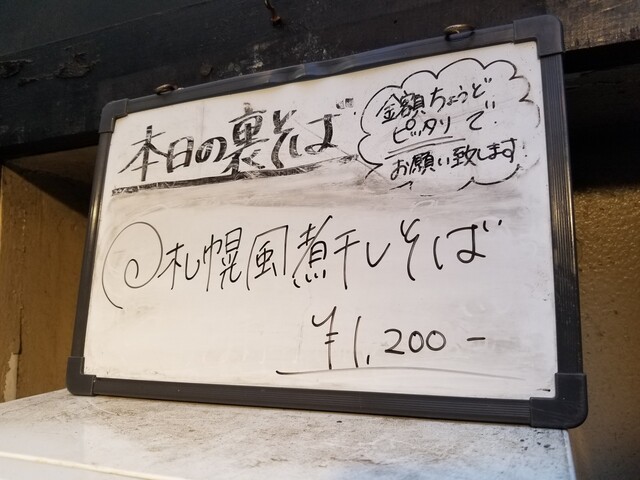 本日の裏そば
金額ちょうど
ピッタリで
お願い致します
札幌風煮干しそば
¥1,200-